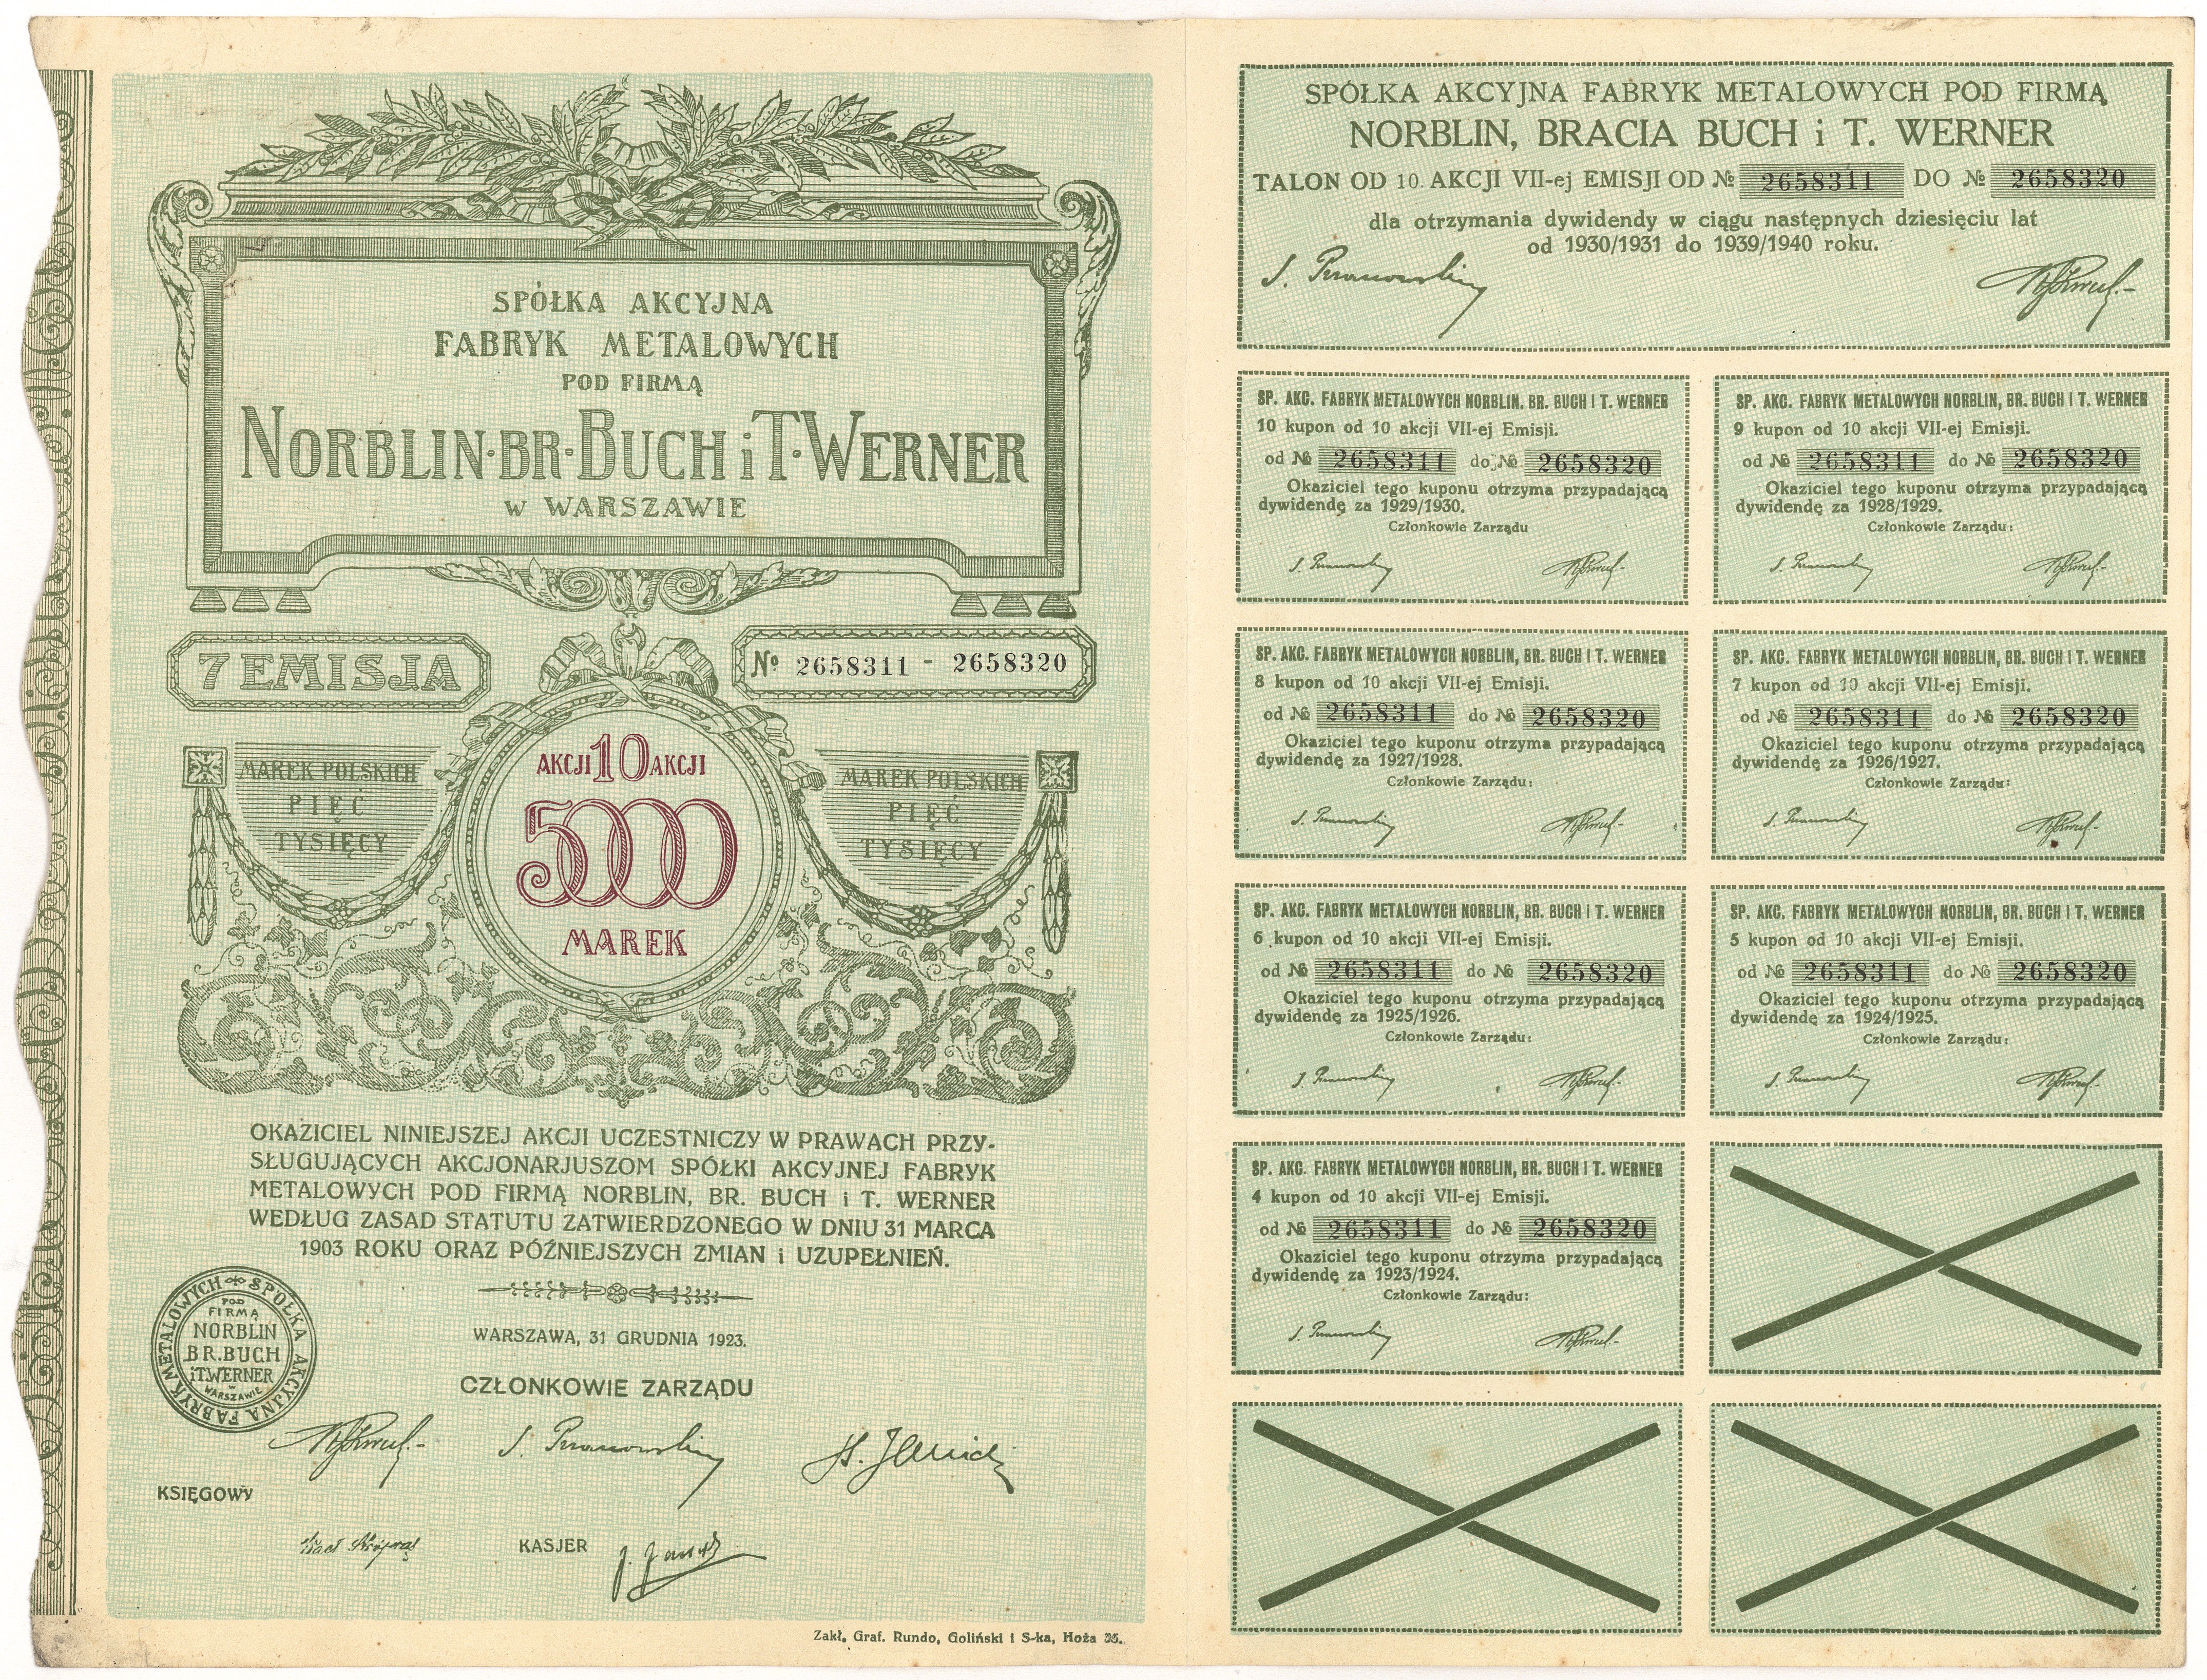 SPÓŁKA AKCYJNA
FABRYK METALOWYCH
POD FIRMĄ
NORBLIN·BR·BUCH i T·WERNER
W WARSZAWIE
7 EMISJA
№ 2658311 - 2658320
MAREK POLSKICH
PIĘĆ
TYSIĘCY
AKCJI 10 AKCJI
5000
MAREK
MAREK POLSKICH
PIĘĆ
TYSIĘCY
OKAZICIEL NINIEJSZEJ AKCJI UCZESTNICZY W PRAWACH PRZY-
SŁUGUJĄCYCH AKCJONARJUSZOM SPÓŁKI AKCYJNEJ FABRYK
METALOWYCH POD FIRMĄ NORBLIN, BR. BUCH i T. WERNER
WEDŁUG ZASAD STATUTU ZATWIERDZONEGO W DNIU 31 MARCA
1903 ROKU ORAZ PÓŹNIEJSZYCH ZMIAN i UZUPEŁNIEŃ.
SPÓŁKA AKCYJNA FABRYK METALOWYCH
POD
FIRMĄ
NORBLIN
BR. BUCH
i T. WERNER
W
WARSZAWIE
WARSZAWA, 31 GRUDNIA 1923.
CZŁONKOWIE ZARZĄDU
KSIĘGOWY
KASJER
Zakł. Graf. Rundo, Goliński i S-ka, Hoża 35.
SPÓŁKA AKCYJNA FABRYK METALOWYCH POD FIRMĄ
NORBLIN, BRACIA BUCH i T. WERNER
TALON OD 10. AKCJI VII-ej EMISJI OD № 2658311 DO № 2658320
dla otrzymania dywidendy w ciągu następnych dziesięciu lat
od 1930/1931 do 1939/1940 roku.
SP. AKC. FABRYK METALOWYCH NORBLIN, BR. BUCH I T. WERNER
10 kupon od 10 akcji VII-ej Emisji.
od № 2658311 do № 2658320
Okaziciel tego kuponu otrzyma przypadającą
dywidendę za 1929/1930.
Członkowie Zarządu
SP. AKC. FABRYK METALOWYCH NORBLIN, BR. BUCH I T. WERNER
9 kupon od 10 akcji VII-ej Emisji.
od № 2658311 do № 2658320
Okaziciel tego kuponu otrzyma przypadającą
dywidendę za 1928/1929.
Członkowie Zarządu:
SP. AKC. FABRYK METALOWYCH NORBLIN, BR. BUCH I T. WERNER
8 kupon od 10 akcji VII-ej Emisji.
od № 2658311 do № 2658320
Okaziciel tego kuponu otrzyma przypadającą
dywidendę za 1927/1928.
Członkowie Zarządu:
SP. AKC. FABRYK METALOWYCH NORBLIN, BR. BUCH I T. WERNER
7 kupon od 10 akcji VII-ej Emisji.
od № 2658311 do № 2658320
Okaziciel tego kuponu otrzyma przypadającą
dywidendę za 1926/1927.
Członkowie Zarządu:
SP. AKC. FABRYK METALOWYCH NORBLIN, BR. BUCH I T. WERNER
6 kupon od 10 akcji VII-ej Emisji.
od № 2658311 do № 2658320
Okaziciel tego kuponu otrzyma przypadającą
dywidendę za 1925/1926.
Członkowie Zarządu:
SP. AKC. FABRYK METALOWYCH NORBLIN, BR. BUCH I T. WERNER
5 kupon od 10 akcji VII-ej Emisji.
od № 2658311 do № 2658320
Okaziciel tego kuponu otrzyma przypadającą
dywidendę za 1924/1925.
Członkowie Zarządu:
SP. AKC. FABRYK METALOWYCH NORBLIN, BR. BUCH I T. WERNER
4 kupon od 10 akcji VII-ej Emisji.
od № 2658311 do № 2658320
Okaziciel tego kuponu otrzyma przypadającą
dywidendę za 1923/1924.
Członkowie Zarządu: